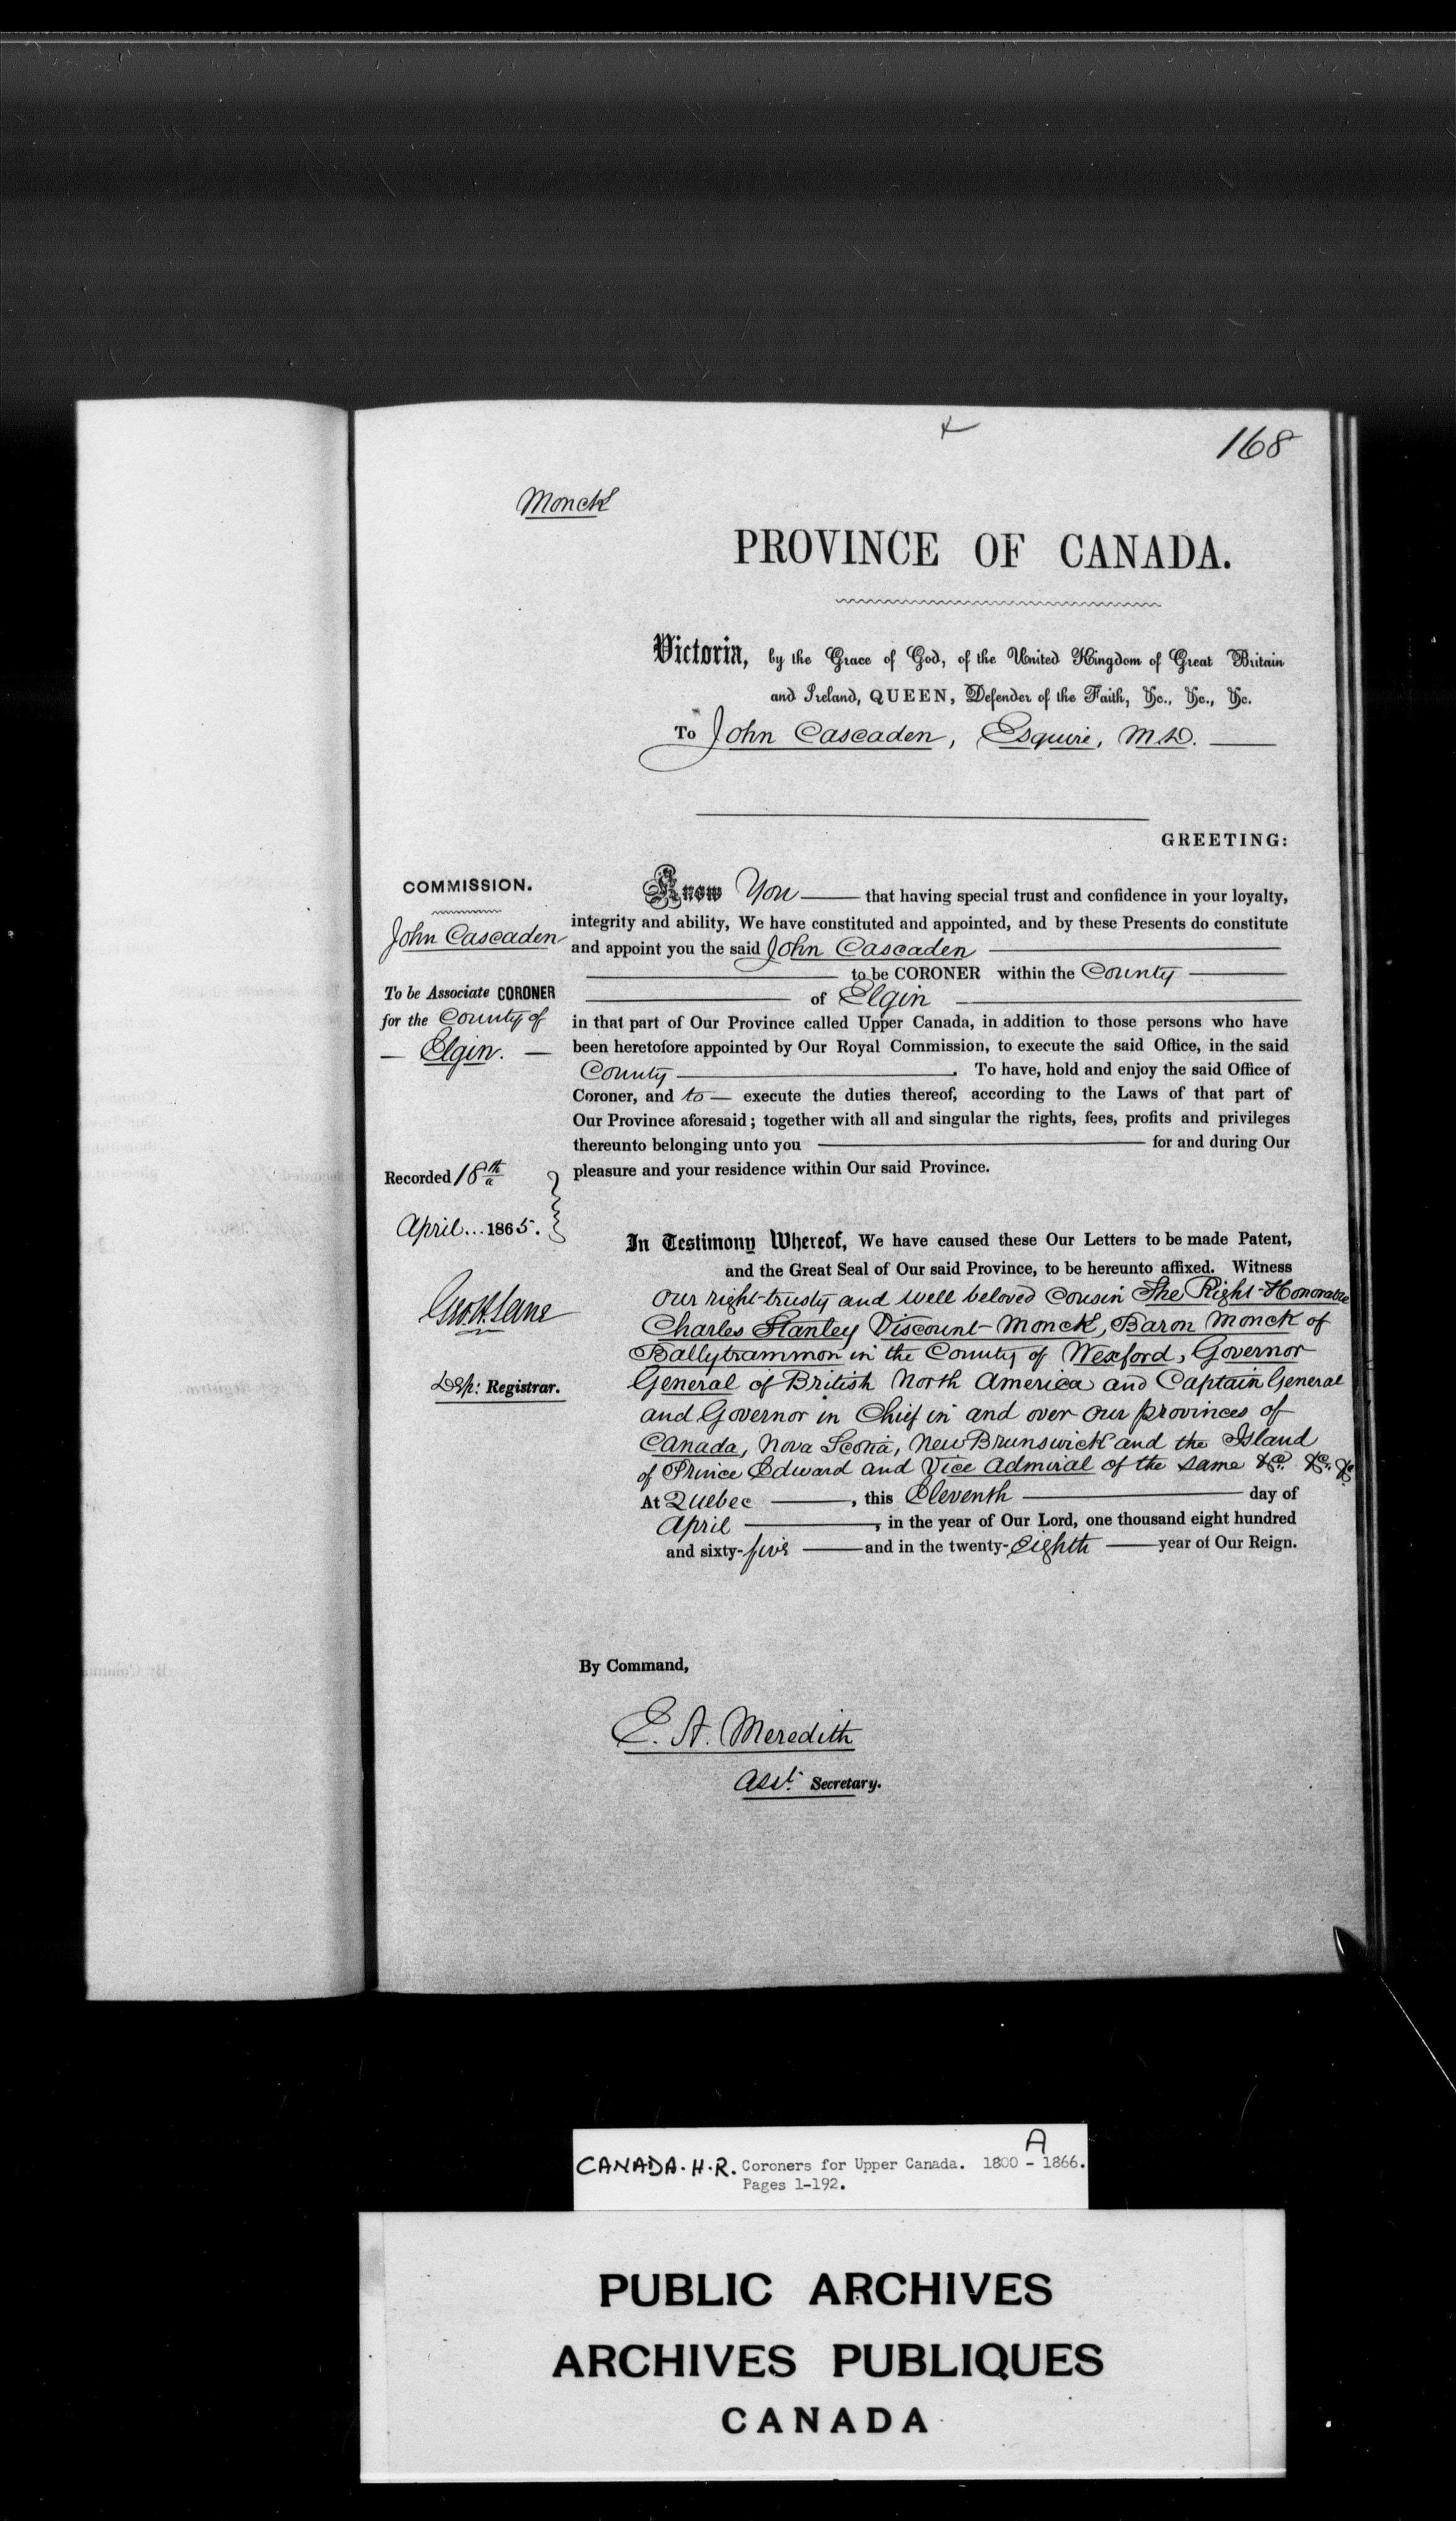 168
Monck
PROVINCE OF CANADA.
Victoria, by the Grace of God, of the United Kingdom of Great Britain
and Ireland, QUEEN, Defender of the Faith, &c., &c., &c.
To John Cascaden, Esquire, M.D.
GREETING:
COMMISSION.
John Cascaden
To be Associate CORONER
for the County of
Elgin.
Recorded 18th
April... 1865.
Geo. H. Lane
Dep: Registrar.
Know You that having special trust and confidence in your loyalty,
integrity and ability, We have constituted and appointed, and by these Presents do constitute
and appoint you the said John Cascaden
to be CORONER within the County
of Elgin
in that part of Our Province called Upper Canada, in addition to those persons who have
been heretofore appointed by Our Royal Commission, to execute the said Office, in the said
County. To have, hold and enjoy the said Office of
Coroner, and to execute the duties thereof, according to the Laws of that part of
Our Province aforesaid; together with all and singular the rights, fees, profits and privileges
thereunto belonging unto you for and during Our
pleasure and your residence within Our said Province.
In Testimony Whereof, We have caused these Our Letters to be made Patent,
and the Great Seal of Our said Province, to be hereunto affixed. Witness
Our right-trusty and well beloved Cousin The Right-Honorable
Charles Stanley Viscount Monck, Baron Monck of
Ballytrammon in the County of Wexford, Governor
General of British North America and Captain General
and Governor in Chief in and over Our provinces of
Canada, Nova Scotia, New Brunswick and the Island
of Prince Edward and Vice Admiral of the same &c. &c. &c
At Quebec, this Eleventh day of
April, in the year of Our Lord, one thousand eight hundred
and sixty-five and in the twenty-eighth year of Our Reign.
By Command,
E. A. Meredith
Asst. Secretary.
A
CANADA. H.R. Coroners for Upper Canada. 1800 - 1866.
Pages 1-192.
PUBLIC ARCHIVES
ARCHIVES PUBLIQUES
CANADA